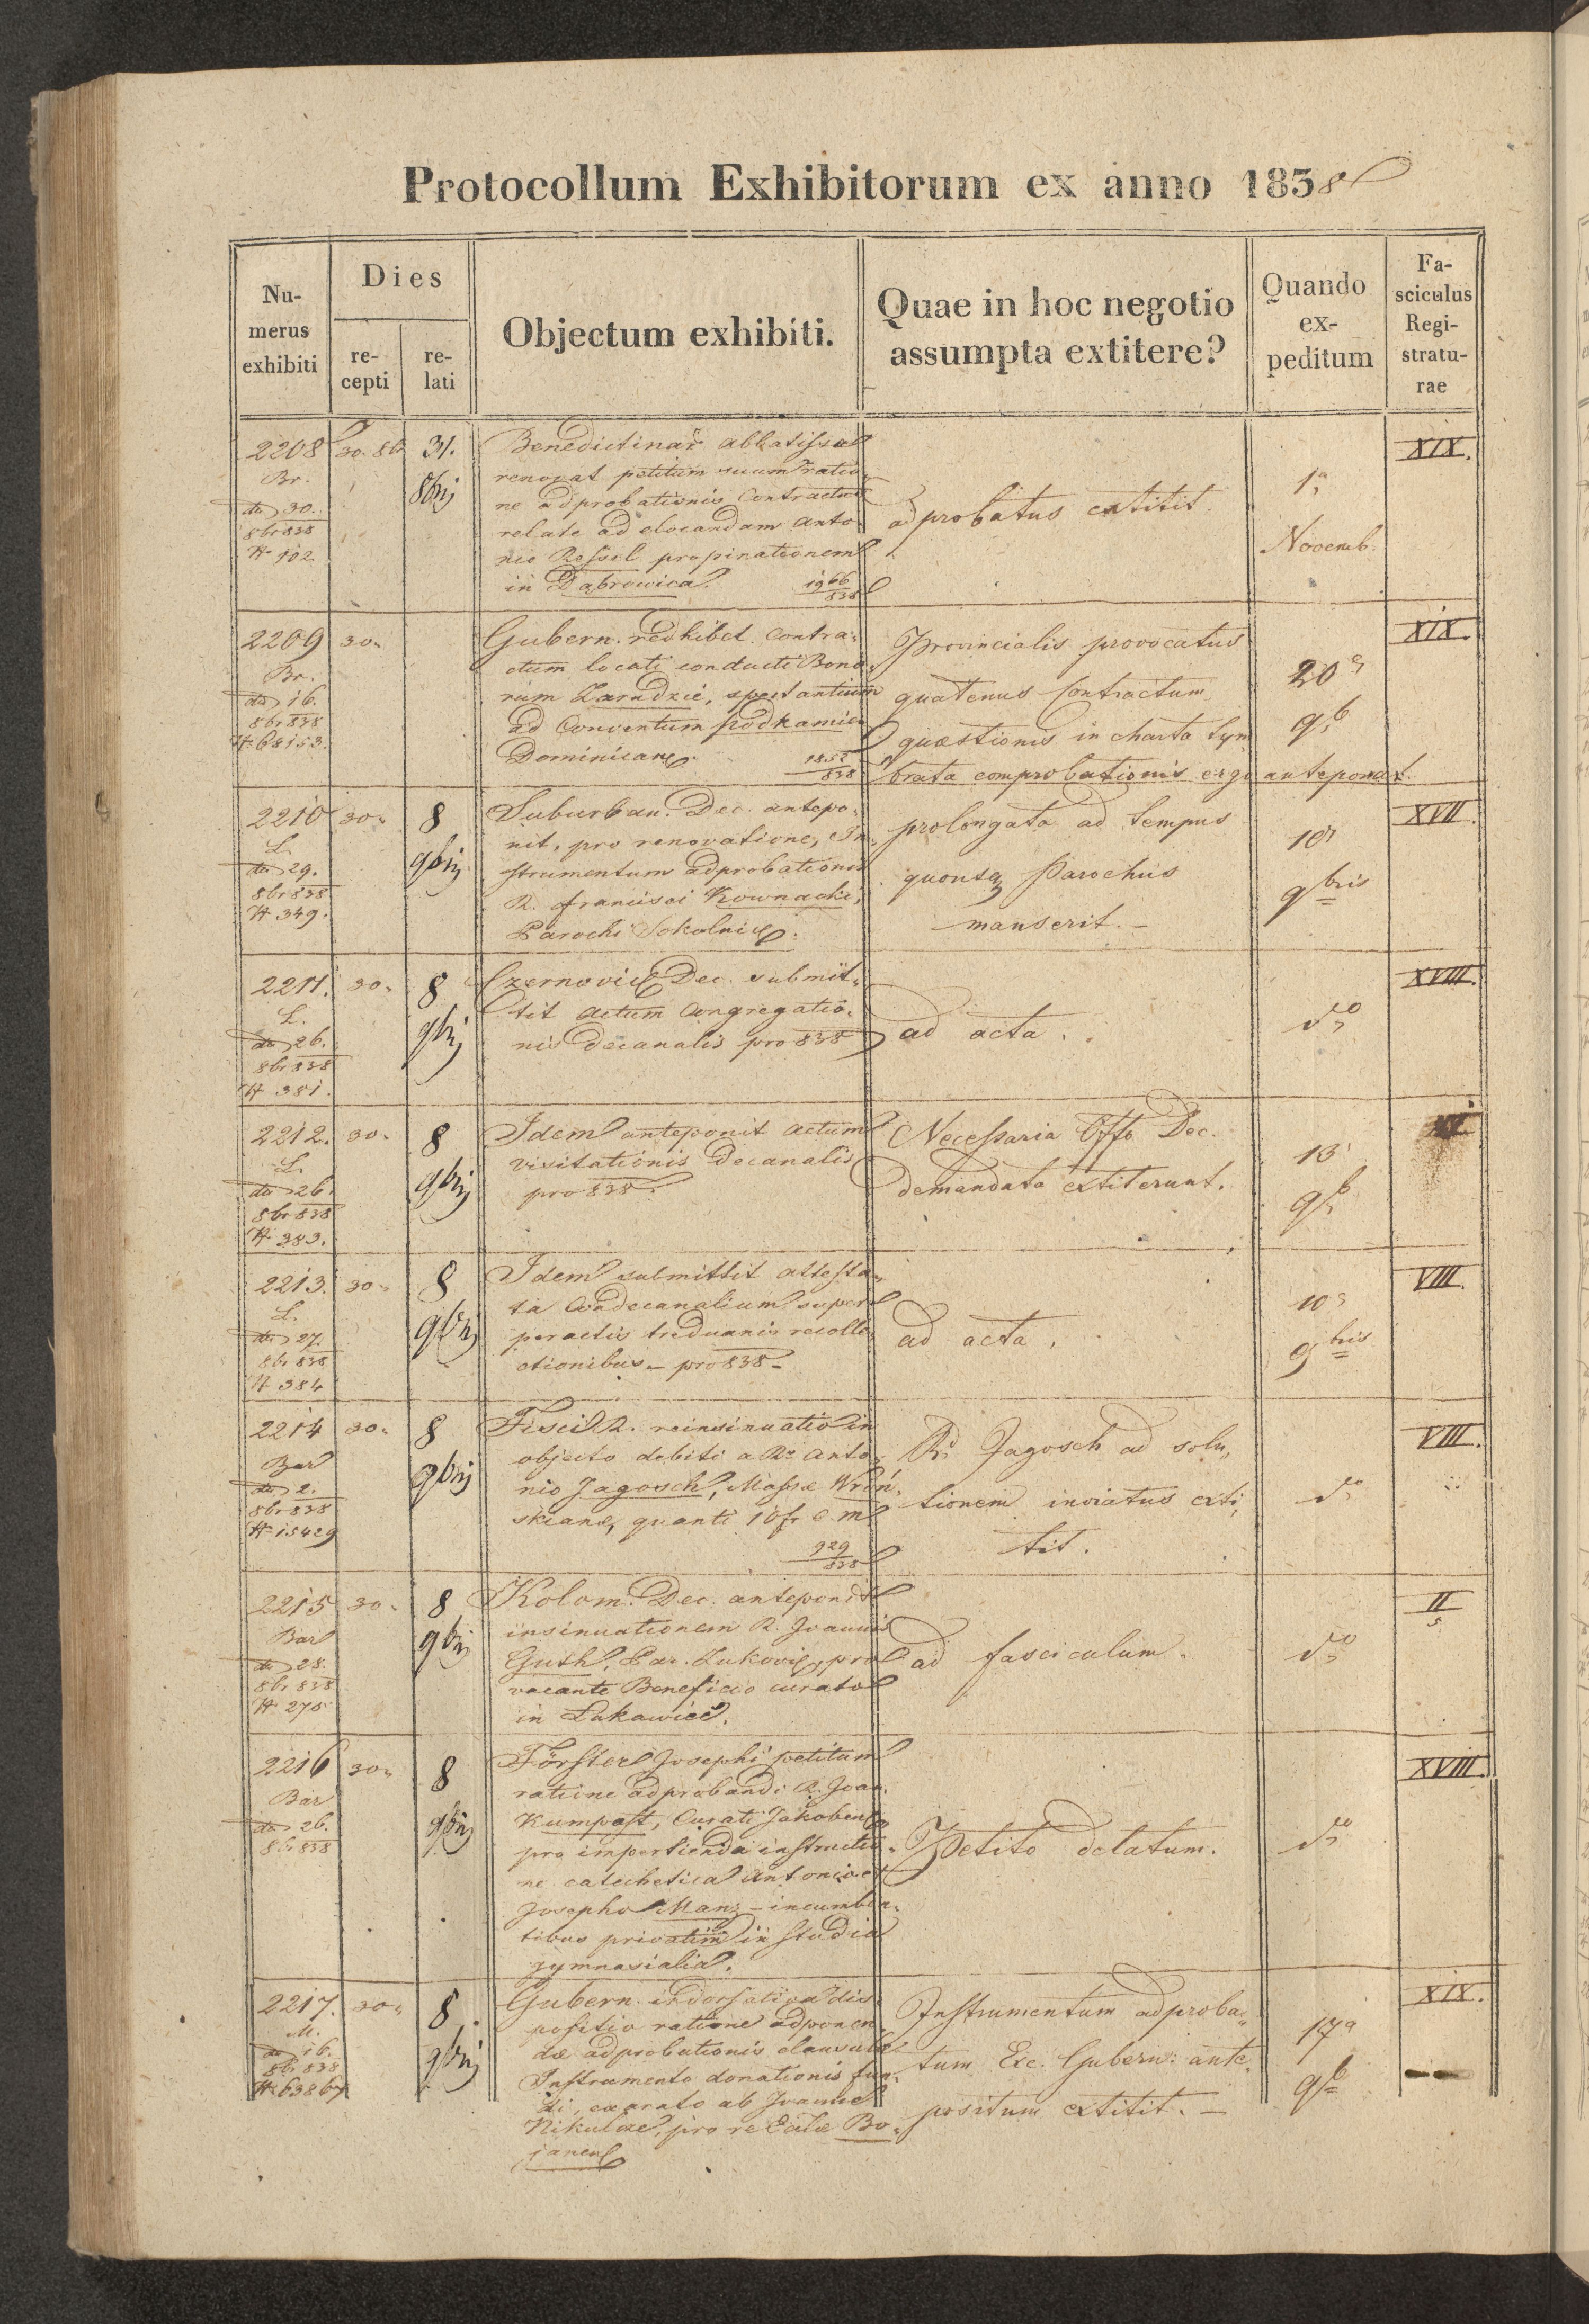 Protocollum Exhibitorum ex anno 1838
Numerus exhibiti
Dies
recepti
relati
Objectum exhibiti.
Quae in hoc negotio
assumpta extitere?
Quando
ex-
peditum
Fa-
sciculus
Regi-
stratu-
rae
2208
Br.
dto 30.
8br 838
N 102
30. 8b
31.
8brij
Benedictinar abbatissa
renovat petitum suum ratio-
ne adprobationis Contractus
relate ad elocandam Anto-
nio Ressel propinationem
in Dąbrowica.
1966
838
adprobatus extitit.
1a
Novemb.
XIX.
2209
Br.
dto 16.
8br 838
N 68153.
30.
Gubern. redhibet contra-
ctum locati conducti Bono-
rum Zarudzie, spectantium
ad Conventum Podkamien
Dominican
1852
838
Provincialis provocatus
quatenus Contractum
quaestionis in charta tym-
brata comprobationis ergo anteponat.
20a
9b
XIX.
2210
L.
dto 29.
8br 838
N 349.
30.
8
9brij
Suburban. Dec. antepo-
nit, pro renovatione, In-
strumentum adprobationis
R. Francisci Kownacki,
Parochi Sokolnic.
prolongata ad tempus
quousq Parochus
manserit. -
10a
9bris
XVII.
2211.
L.
dto 26.
8br 838
N 381.
30.
8
9brij
Czernovic Dec. submit-
tit actum Congregatio-
nis decanalis pro 838
ad acta.
do
XVIII.
2212.
L.
dto 26.
8br 838
N 383.
30.
8
9brij
Idem anteponit actum
visitationis Decanalis
pro 838.
Necessaria Offo Dec.
demandata extiterunt.
13
9b
2213.
L.
dto 27.
8br 838
N 384
30.
8
9brij
Idem submittit attesta-
ta Condecanalium super
peractis triduanis recolle-
ctionibus - pro 838 -
ad acta.
10a
9bris
VIII.
2214
Bar
dto 2.
8br 838
N 15429
30.
8
9brij
Fisci R. reinsinuatio in
objecto debiti a Ro Anto-
nio Jagosch, Massae Wroń-
skianae, quanti 10 fr C. m
929
838
R. Jagosch ad solu-
tionem inviatus exti-
tit.
do
VIII.
2215
Bar
dto 28.
8br 838
N 275
30.
8
9brij
Kolom. Dec. anteponit
insinuationem R. Joannis
Guth, Par. Zukovic, pro
vacante Beneficio curato
in Łukawiec.
ad fasciculum.
do
II
5
2216
Bar
dto 26.
8br 838
30.
8
9brij
Förster Josephi petitum
ratione adprobandi R. Joan.
Kumpost, Curati Jakobens
pro impertienda instructio-
ne catechetica Antonio et
Josepho Manz - incumben-
tibus privatim in studia
gymnasialia.
Petito delatum.
do
XVIII.
2217.
M.
dto 16.
8br 838
N 63867
30.
8
9brij
Gubern. indorsativa dis-
positio ratione adponen-
dae adprobationis clausulae
Instrumento donationis fun-
di, exarato ab Joanne
Nikulze, pro re Eccliae Bo-
janens
Instrumentum adproba-
tum Exc. Gubern: ante-
positum extitit. -
17a
9b
XIX.